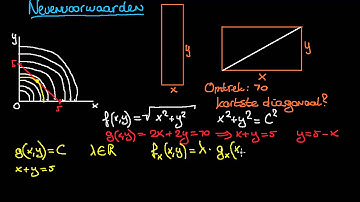 Nevenvoorwaarden
y
5
5
x
y
x
y
x
Omtrek: 70
kortste diagonaal?
f(x,y) = √x²+y²
x²+y² = C²
g(x,y) = 2x+2y=70 ⇒ x+y=5
y=5-x
g(x,y) = C
λ∈ℝ
fₓ(x,y) = λ · gₓ(x
x+y=5